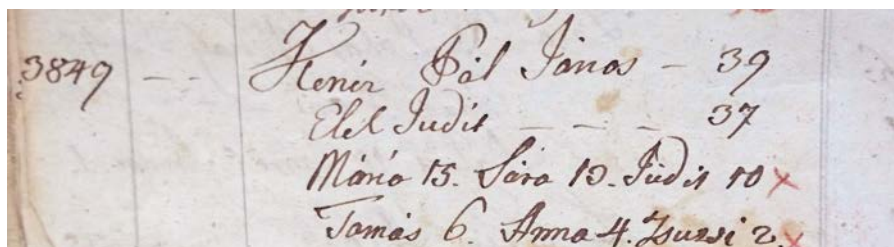 3849 — — Kenéz Pál János — 39
Elek Judit — — — 37
Mária 15. Sára 13. Judit 10 x
Tamás 6. Anna 4. Zsuzsi 2. x